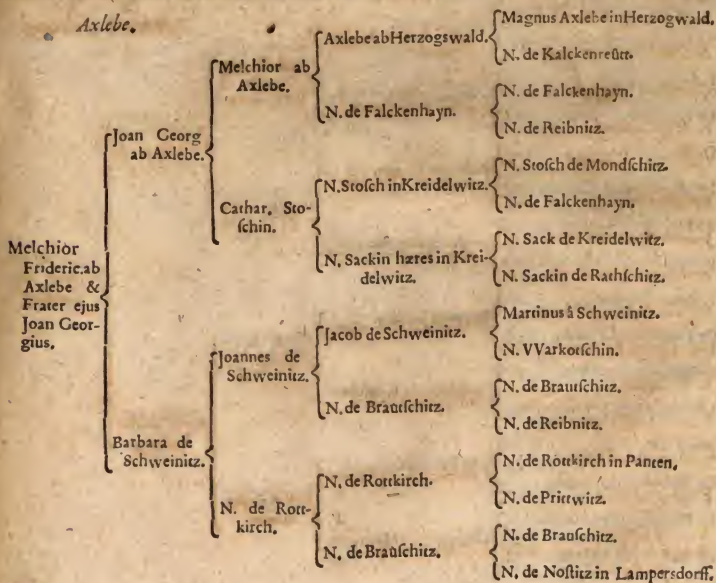 Axlebe.
Melchior Frideric. ab
Axlebe &
Frater ejus
Joan Geor-
gius.
Joan Georg
ab Axlebe.
Barbara de
Schweinitz.
Melchior ab
Axlebe.
Cathar. Sto-
ſchin.
Joannes de
Schweinitz.
N. de Rott-
kirch.
Axlebe ab Herzogswald.
N. de Falckenhayn.
N. Stoſch in Kreidelwitz.
N. Sackin hæres in Krei-
delwitz.
Jacob de Schweinitz.
N. de Brautſchitz.
N. de Rottkirch.
N. de Brauſchitz.
Magnus Axlebe in Herzogwald.
N. de Kalckenreütt.
N. de Falckenhayn.
N. de Reibnitz.
N. Stoſch de Mondſchitz.
N. de Falckenhayn.
N. Sack de Kreidelwitz.
N. Sackin de Rathſchitz.
Martinus à Schweinitz.
N. VVarkotſchin.
N. de Brautſchitz.
N. de Reibnitz.
N. de Rottkirch in Panten,
N. de Prittwitz.
N. de Brauſchitz.
N. de Noſtitz in Lampersdorff.